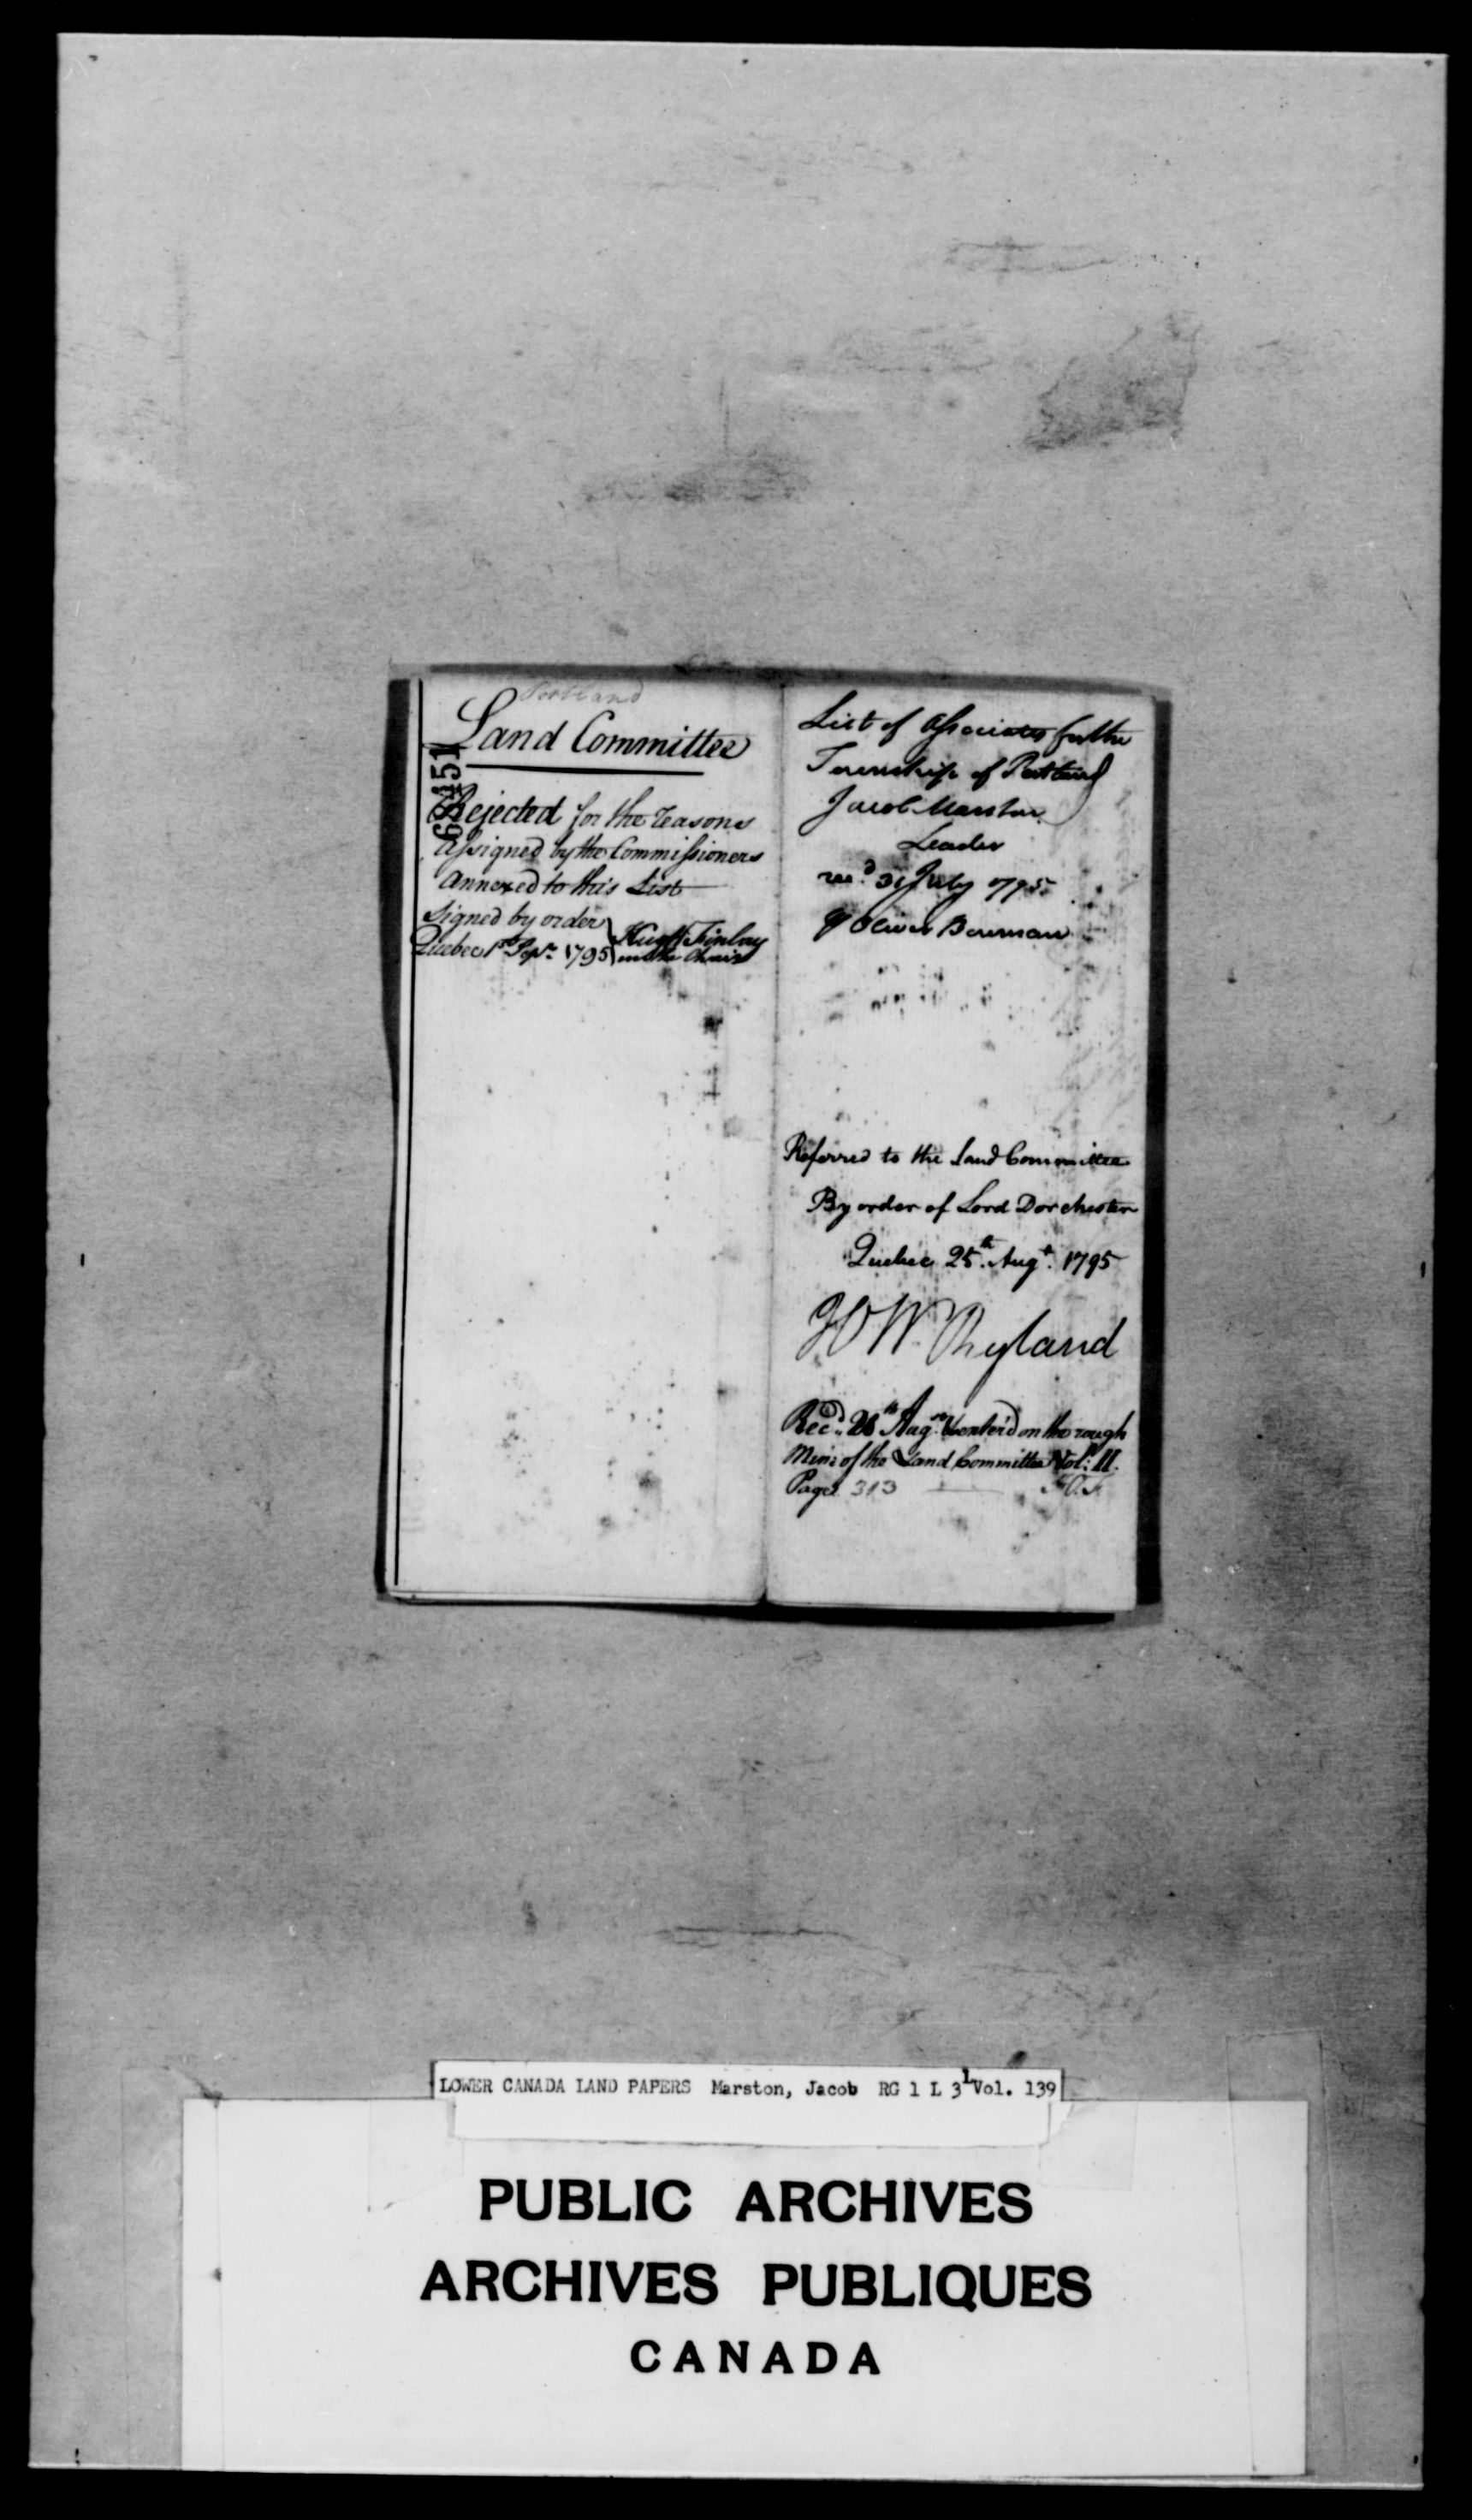 Portland
Land Committee
Rejected for the reasons
assigned by the Commissioners
annexed to this List
Signed by order
Quebec 1st Sepr. 1795
Hugh Finlay
in the Chair
List of Associates for the
Township of Portland
Jacob Marston
Leader
recd. 31 July 1795
Oliver Bowman
Referred to the Land Committee
By order of Lord Dorchester
Quebec 25th. Augt. 1795
H W. Ryland
Recd. 28th Augt. & enter'd on the rough
Min: of the Land Committee Vol: II.
Page 313
LOWER CANADA LAND PAPERS Marston, Jacob RG 1 L 3L Vol. 139
PUBLIC ARCHIVES
ARCHIVES PUBLIQUES
CANADA